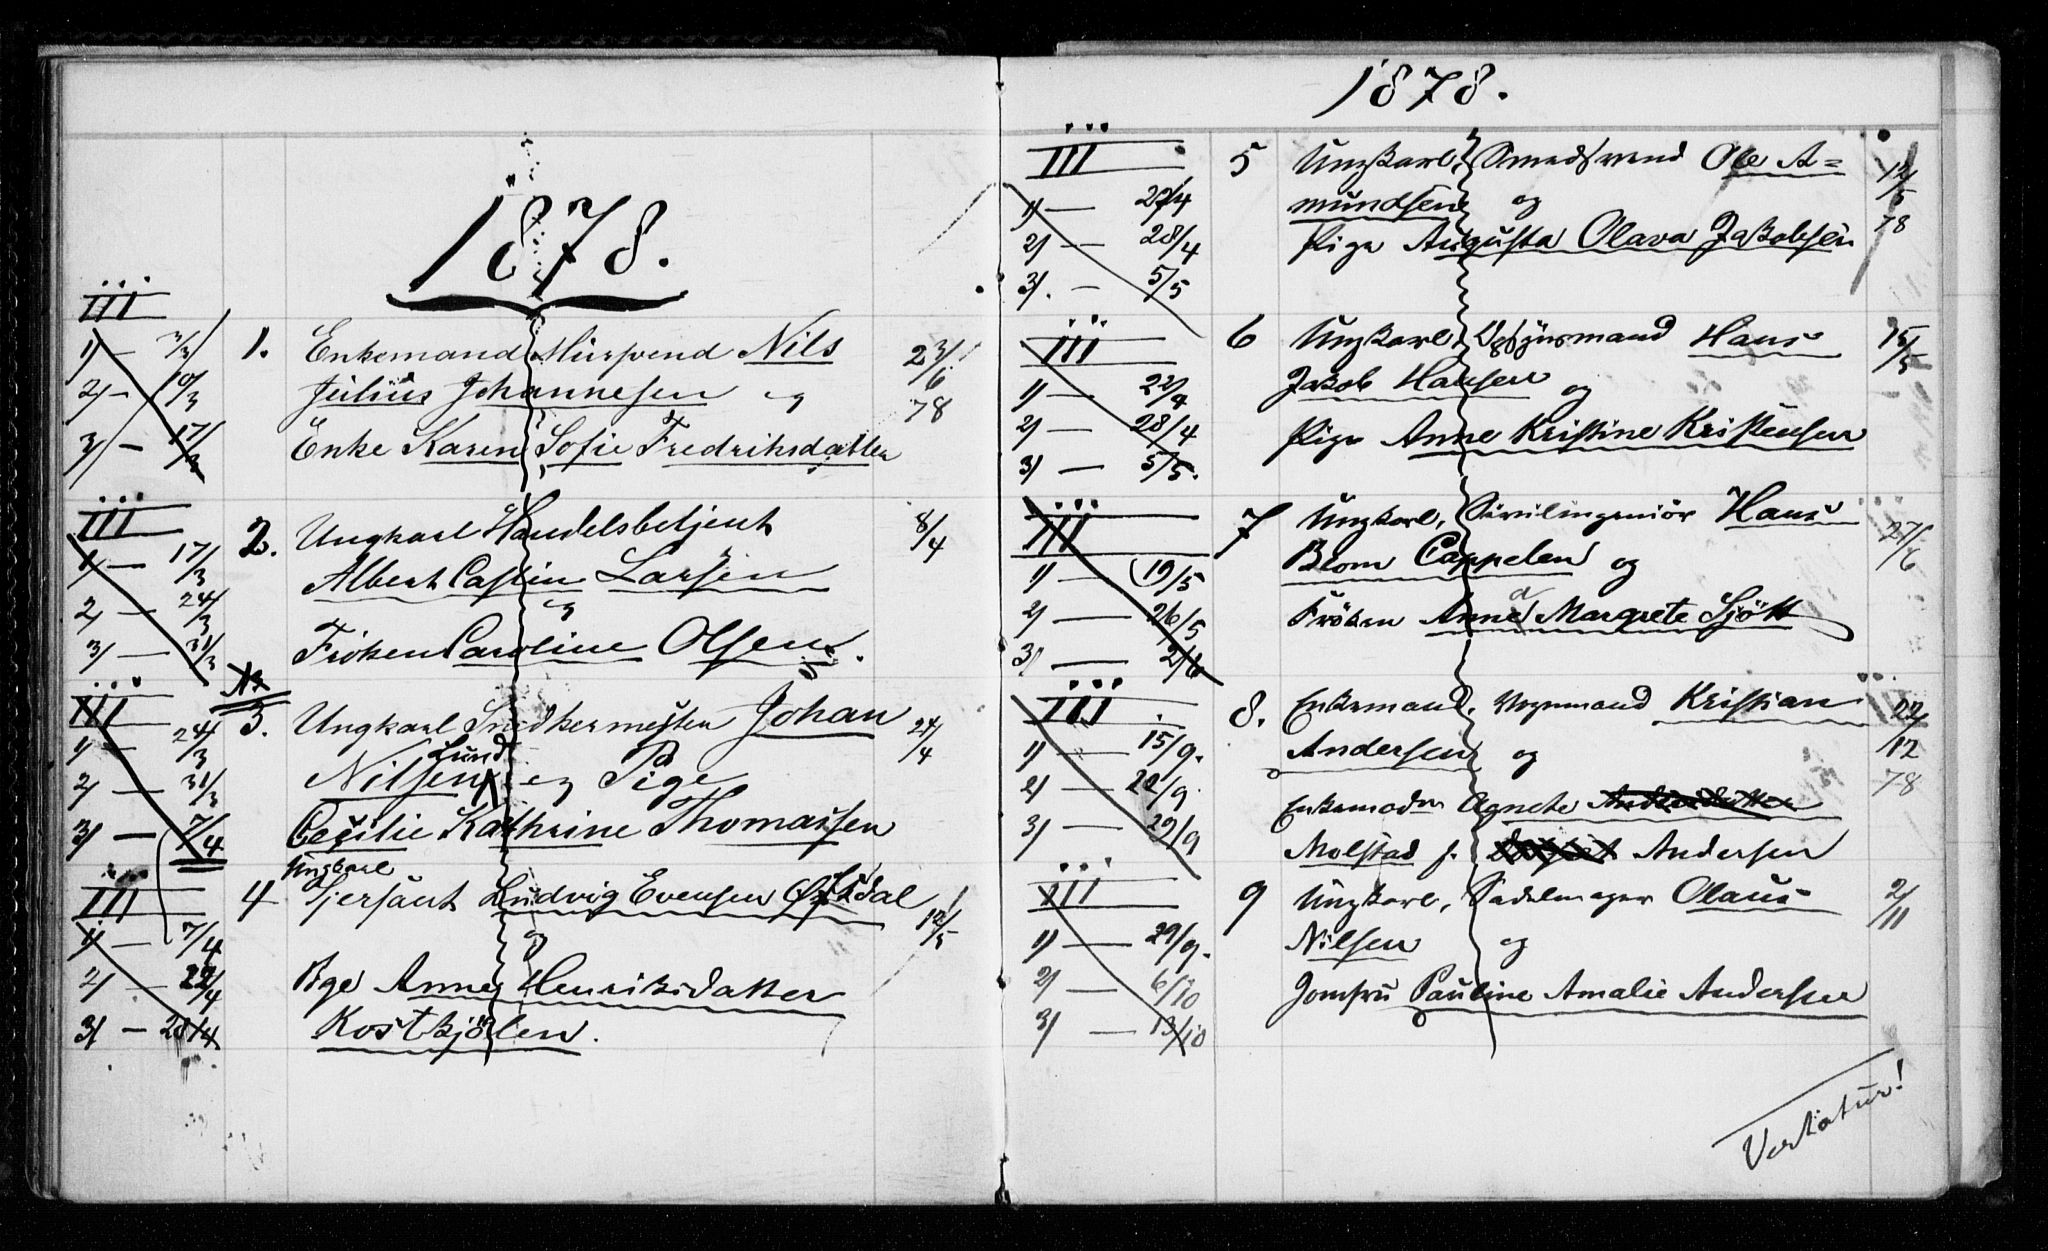 1878.
III
1) — 3/3
2) — 10/3
3) — 17/3
1. Enkemand Murssvend Nils 23/6
Julius Johannesen og 78
Enke Karen Sofie Fredriksdatter
III
1) — 17/3
2) — 24/3
3) — 31/3
2. Ungkarl Handelsbetjent 8/4
Albert Castin Larsen
og
Frøken Caroline Olsen.
III
1) — 24/3
2) — 31/3
3) — 7/4
3. Ungkarl Snedkermester Johan 24/4
Lund
Nilsen og Pige
Cecilie Kathrine Thomassen
III
1) — 7/4
2) — 22/4
3) — 28/4
Ungkarl
4 Sjersant Ludvig Evensen 12/5
og
Pige Anne Henriksdatter
Kostkjölen.
1878.
III
1) — 22/4
2) — 28/4
3). — 5/5
5 Ungkarl, Smedsvend Ole A= 12/5
mundsen og 78
Pige Augusta Olava Jakobsen
III
1) — 22/4
2) — 28/4
3) — 5/5.
6 Ungkarl, Opsynsmand Hans 15/5
Jakob Hansen og
Pige Anne Kristine Kristensen
III
1) — 19/5
2) — 26/5
3) — 2/6
7 Ungkarl, Sivilingeniör Hans 27/6
Blom Cappelen og
Fröken Anna Margrete Sjött
III
1) — 15/9.
2) — 22/9
3) — 29/9
8. Enkemand, Vognmand Kristian 22/12
Andersen og 78
Enkemadm Agnete Andersdatter
Molstad f. Andersen
III
1) — 29/9.
2) — 6/10
3) — 13/10
9 Ungkarl, Sadelmager Olaus 2/11
Nilsen og
Jomfru Pauline Amalie Andersen
Vertatur!